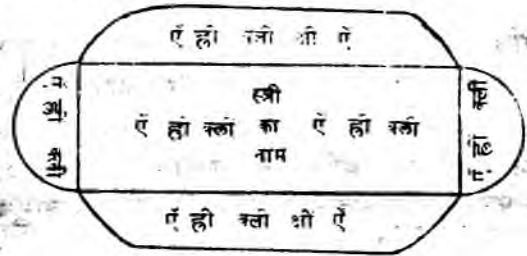 ऐं ह्रीं क्लीं श्रीं ऐं
ऐं ह्रीं क्लीं
स्त्री
ऐं ह्रीं क्लीं का ऐं ह्रीं क्लीं
नाम
ऐं ह्रीं क्लीं
ऐं ह्रीं क्लीं श्रीं ऐं